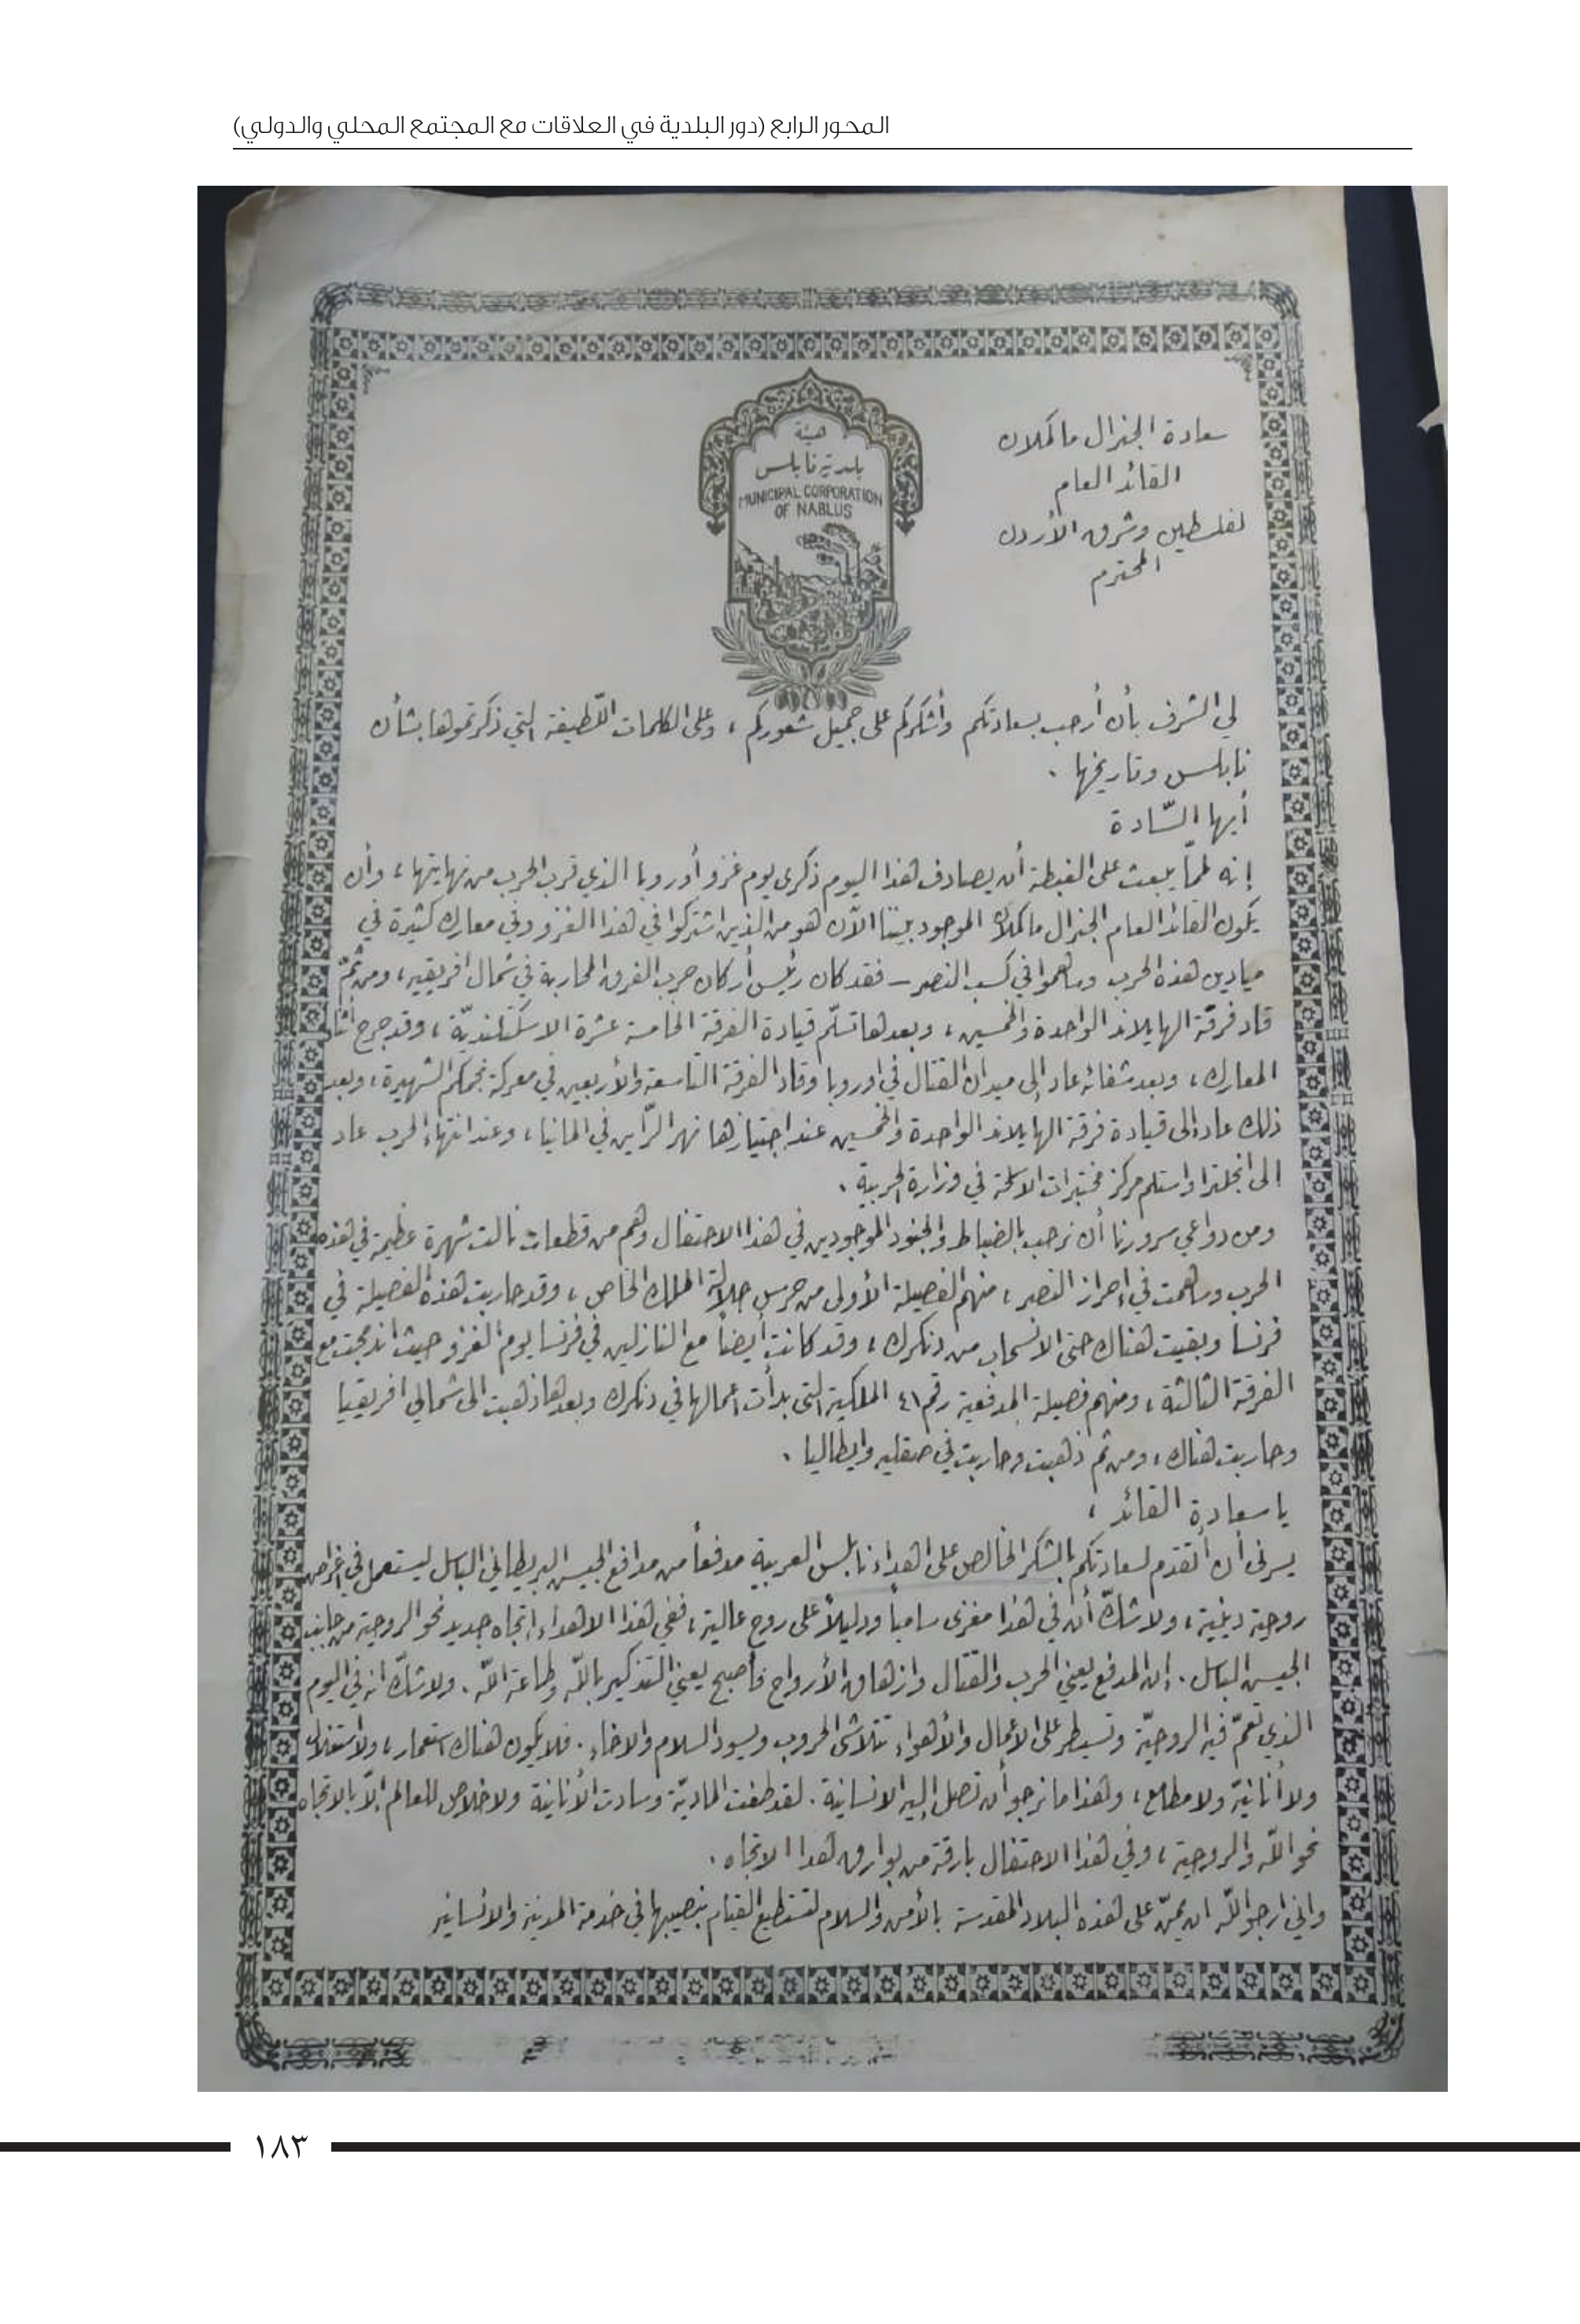 المحور الرابع (دور البلدية في العلاقات مع المجتمع المحلي والدولي)
سعادة الجنرال ماكملان
القائد العام
لفلسطين وشرق الأردن
المحترم
هيئة
بلدية نابلس
MUNICIPAL CORPORATION
OF NABLUS
لي الشرف بأن أرحب بسعادتكم وأشكركم على جميل شعوركم ، وعلى الكلمات اللّطيفة التي ذكرتموها بشأن
نابلس وتاريخها .
أيها السّادة
إنه لممّا يبعث على الغبطة أن يصادف هذا اليوم ذكرى يوم غزو أوروبا الذي قرب الحرب من نهايتها ، وأن
يكون القائد العام الجنرال ماكملان الموجود بيننا الآن هو من الذين اشتركوا في هذا الغزو وفي معارك كثيرة في
ميادين هذه الحرب وساهموا في كسب النصر – فقد كان رئيس أركان حرب الفرق المحاربة في شمال افريقيه ، ومن ثمّ
قاد فرقة الهايلاند الواحدة والخمسين ، وبعدها تسلّم قيادة الفرقة الخامسة عشرة الاسكتلنديّة ، وقد جرح أثناء
المعارك ، وبعد شفائه عاد إلى ميدان القتال في اوروبا وقاد الفرقة التاسعة والأربعين في معركة الشهيرة ، وبعد
ذلك عاد إلى قيادة فرقة الهايلاند الواحدة والخمسين عند اجتيازها نهر الرّاين في المانيا ، وعند انتهاء الحرب عاد
إلى انجلترا واستلم مركز مختبرات الاسلحة في وزارة الحربية .
ومن دواعي سرورنا أن نرحب بالضباط والجنود الموجودين في هذا الاحتفال وهم من قطعات نالت شهرة عظيمة في هذه
الحرب وساهمت في إحراز النصر ، منهم الفصيلة الأولى من حرس جلالة الملك الخاص ، وقد حاربت هذه الفصيلة في
فرنسا وبقيت هناك حتى الانسحاب من دنكرك ، وقد كانت أيضاً مع النازلين في فرنسا يوم الغزو حيث اندمجت مع
الفرقة الثالثة ، ومنهم فصيلة المدفعية رقم ٤١ الملكية التي بدأت أعمالها في دنكرك وبعدها ذهبت الى شمالي افريقيا
وحاربت هناك ، ومن ثم ذهبت وحاربت في صقليه وايطاليا .
يا سعادة القائد ،
يسرني أن أتقدم لسعادتكم بالشكر الخالص على اهداء نابلس العربية مدفعاً من مدافع الجيش البريطاني الباسل ليستعمل في اغراض
روحية دينية ، ولا شكّ أن في هذا مغزى سامياً ودليلاً على روح عالية ، ففي هذا الاهداء إتجاه جديد نحو الروحية من جانب
الجيش الباسل . إن المدفع يعني الحرب والقتال وازهاق الأرواح فأصبح يعني التذكير باللّه وطاعة اللّه . ولا شكّ انه في اليوم
الذي تعمّ فيه الروحيّة وتسيطر على الأعمال والأهواء تتلاشى الحروب ويسود السلام والاخاء . فلا يكون هناك استعمار ، ولا استغلال
ولا أنانيّة ولا مطامع ، وهذا ما نرجو أن تصل إليه الانسانية . لقد طغت الماديّة وسادت الأنانية ولا خلاص للعالم إلّا بالاتجاه
نحو اللّه والروحية ، وفي هذا الاحتفال بارقة من بوارق هذا الاتجاه .
واني ارجو اللّه ان يمنّ على هذه البلاد المقدسة بالأمن والسلام لتستطيع القيام بنصيبها في خدمة المدنية والانسانيه
١٨٣